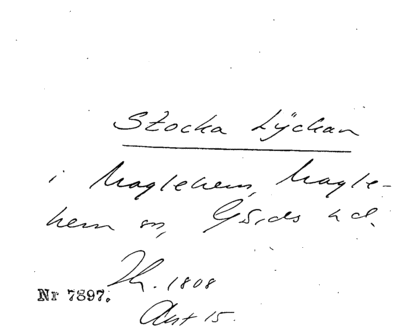 Stocka Lyckan
i Maglehem, Magle-
hem sn, Gärds hd.
1808
Nr 7897.
Akt 15.